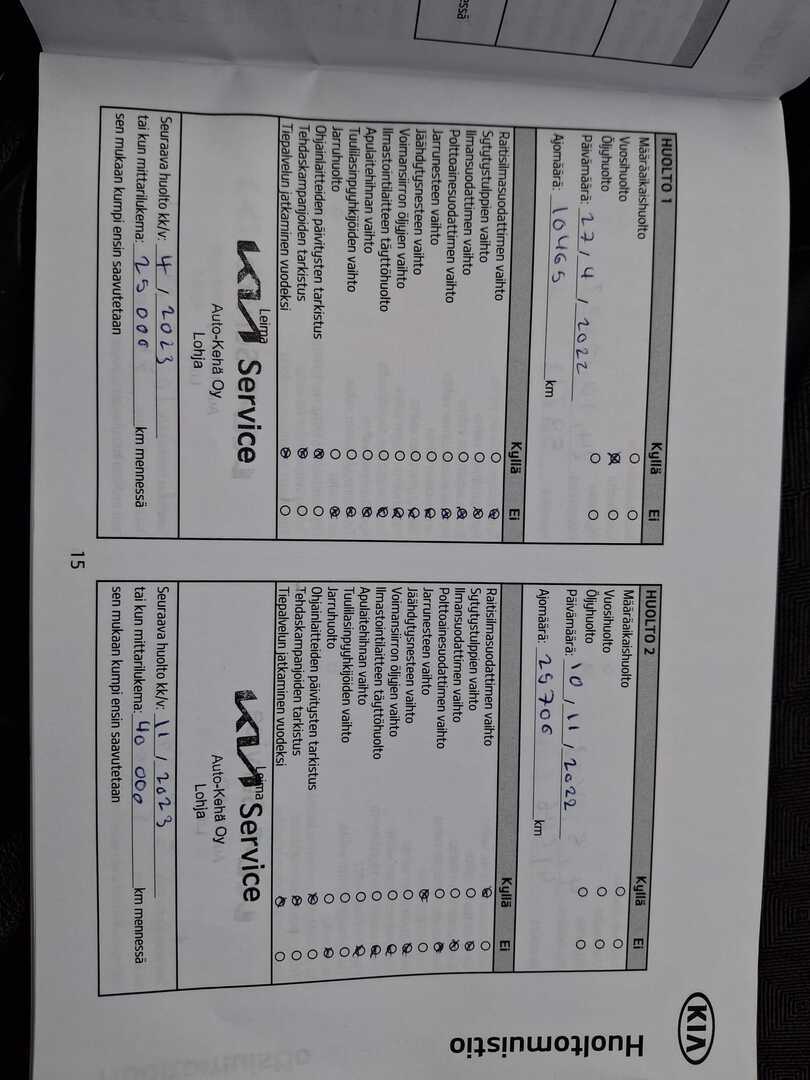 KIA
Huoltomuistio
HUOLTO 1
Kyllä Ei
Määräaikaishuolto
Vuosihuolto
Öljyhuolto
Päivämäärä: 27 / 4 / 2022
Ajomäärä: 10465 km
Kyllä Ei
Raitisilmasuodattimen vaihto
Sytytystulppien vaihto
Ilmansuodattimen vaihto
Polttoainesuodattimen vaihto
Jarrunesteen vaihto
Jäähdytysnesteen vaihto
Voimansiirron öljyjen vaihto
Ilmastointilaitteen täyttöhuolto
Apulaitehihnan vaihto
Tuulilasinpyyhkijöiden vaihto
Jarruhuolto
Ohjainlaitteiden päivitysten tarkistus
Tehdaskampanjoiden tarkistus
Tiepalvelun jatkaminen vuodeksi
Leima
KIA Service
Auto-Kehä Oy
Lohja
Seuraava huolto kk/v: 4 / 2023
tai kun mittarilukema: 25 000 km mennessä
sen mukaan kumpi ensin saavutetaan
HUOLTO 2
Kyllä Ei
Määräaikaishuolto
Vuosihuolto
Öljyhuolto
Päivämäärä: 10 / 11 / 2022
Ajomäärä: 25706 km
Kyllä Ei
Raitisilmasuodattimen vaihto
Sytytystulppien vaihto
Ilmansuodattimen vaihto
Polttoainesuodattimen vaihto
Jarrunesteen vaihto
Jäähdytysnesteen vaihto
Voimansiirron öljyjen vaihto
Ilmastointilaitteen täyttöhuolto
Apulaitehihnan vaihto
Tuulilasinpyyhkijöiden vaihto
Jarruhuolto
Ohjainlaitteiden päivitysten tarkistus
Tehdaskampanjoiden tarkistus
Tiepalvelun jatkaminen vuodeksi
Leima
KIA Service
Auto-Kehä Oy
Lohja
Seuraava huolto kk/v: 11 / 2023
tai kun mittarilukema: 40 000 km mennessä
sen mukaan kumpi ensin saavutetaan
15